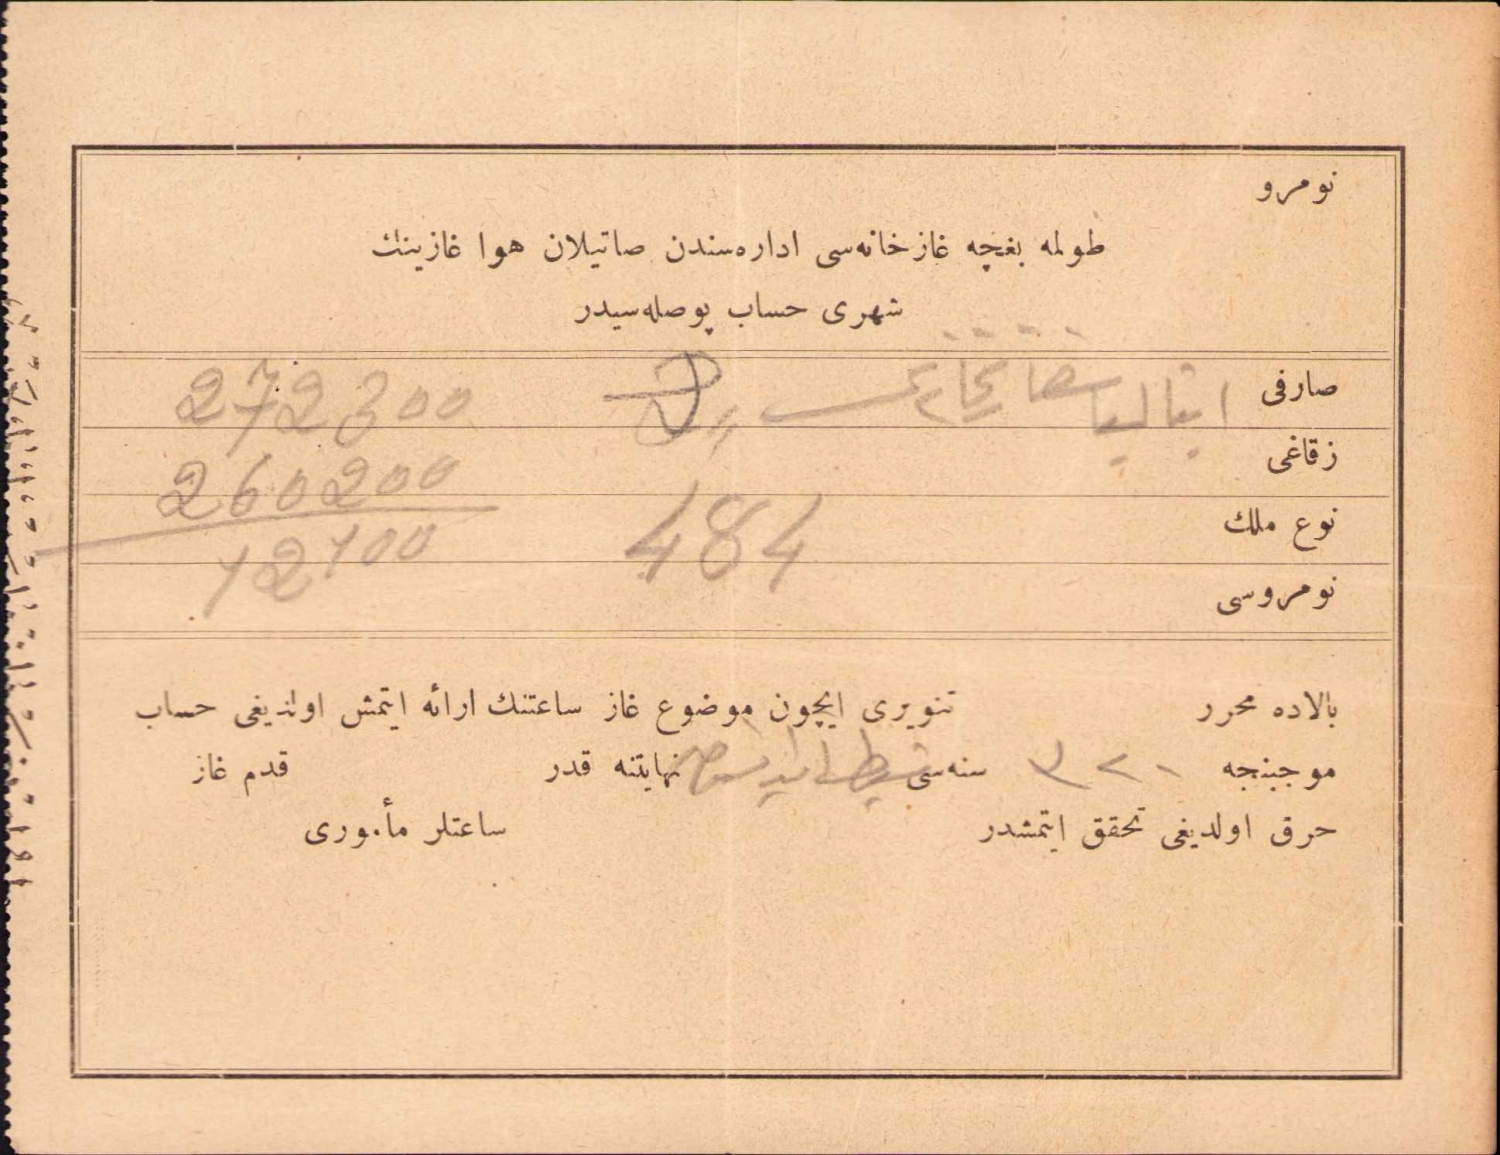 نومرو
طولمه بغچه غازخانه‌سی اداره‌سندن صاتیلان هوا غازینك
شهری حساب پوصله‌سیدر
صارفی ایتالیا
272300
زقاغی
260200
نوع ملك 484
12100
نومروسی
بالاده محرر تنویری ایچون موضوع غاز ساعتنك ارائه ایتمش اولدیغی حساب
موجبنجه ٣٢٠ سنه‌سی نهایتنه قدر قدم غاز
حرق اولدیغی تحقق ایتمشدر ساعتلر مأموری